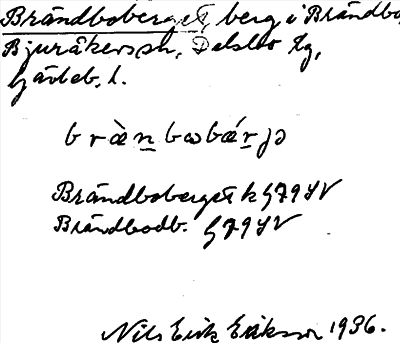 Brändboberget, berg i Brändbo,
Bjuråkers sn, Delsbo tg,
Gävleb. l.
b r æ̀ n b ω b ǽ r j ə
Brändboberget k G79SV
Brändbodb. G79SV
Nils Erik Eriksson 1936.